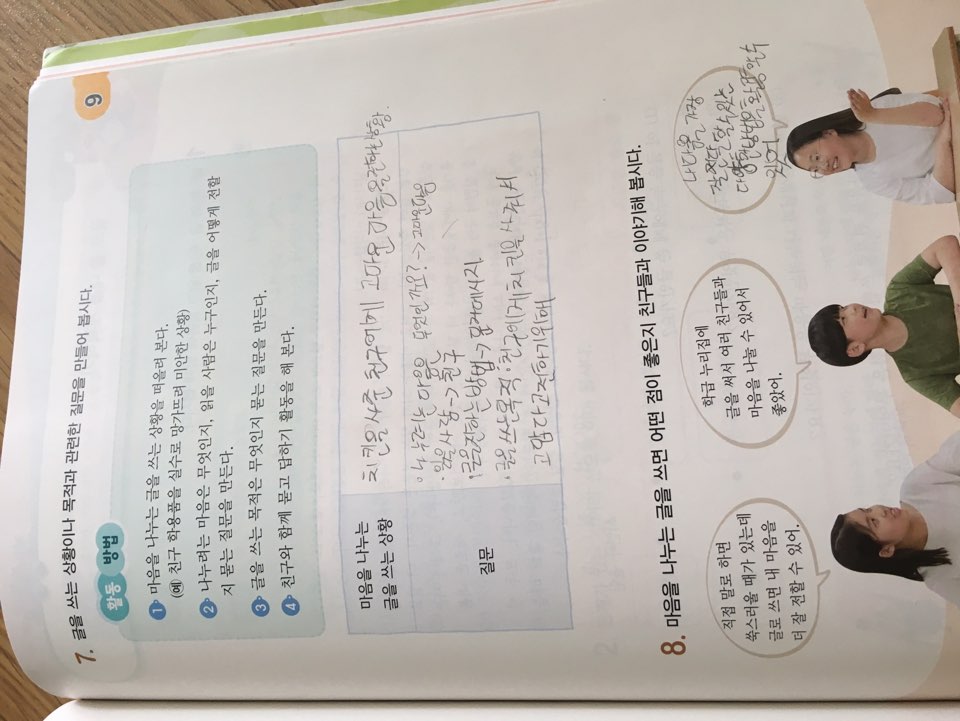 7. 글을 쓰는 상황이나 목적과 관련한 질문을 만들어 봅시다.
9
활동 방법
1 마음을 나누는 글을 쓰는 상황을 떠올려 본다.
(예) 친구 학용품을 실수로 망가뜨려 미안한 상황)
2 나누려는 마음은 무엇인지, 읽을 사람은 누구인지, 글을 어떻게 전할
지 묻는 질문을 만든다.
3 글을 쓰는 목적은 무엇인지 묻는 질문을 만든다.
4 친구와 함께 묻고 답하기 활동을 해 본다.
마음을 나누는
글을 쓰는 상황
치킨을 사준 친구에게 고마운 마음을 전한 상황.
질문
나누려는 마음은 무엇인가요? -> 고마운 마음
읽을 사람 -> 친구
글을 전하는 방법 -> 집에서 편지
글을 쓰는 목적: 친구에게 치킨을 사줘서
고맙다고 전하기 위해
8. 마음을 나누는 글을 쓰면 어떤 점이 좋은지 친구들과 이야기해 봅시다.
직접 말로 하면
쑥스러울 때가 있는데
글로 쓰면 내 마음을
더 잘 전할 수 있어.
학급 누리집에
글을 써서 여러 친구들과
마음을 나눌 수 있어서
좋았어.
나다운
잘 전달 할 수 있는
다양한 방법을 활용할 수
있어